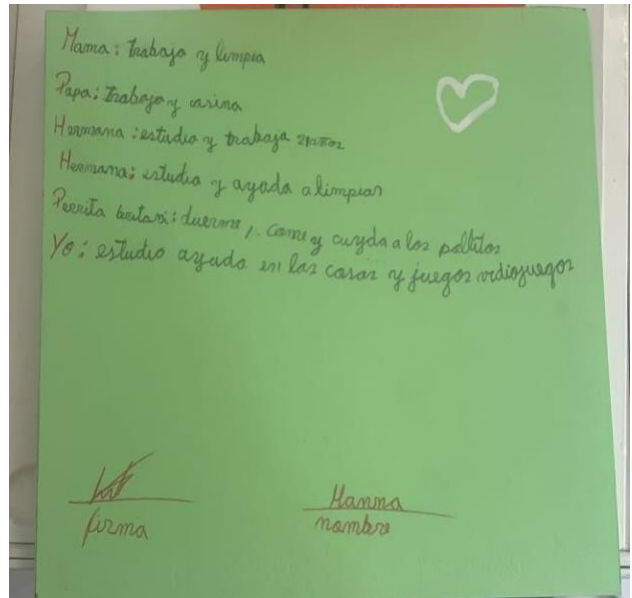 Mama: trabajo y limpia
Papa: trabajo y casina
Hermana: estudio y trabaja 21años
Hermana: estudio y ayada a limpiar
Perrita: duerme, come y cuyda a los pollitos
Yo: estudio ayudo en las casas y juegos vidiojuegos
firma
Hanna
nombre